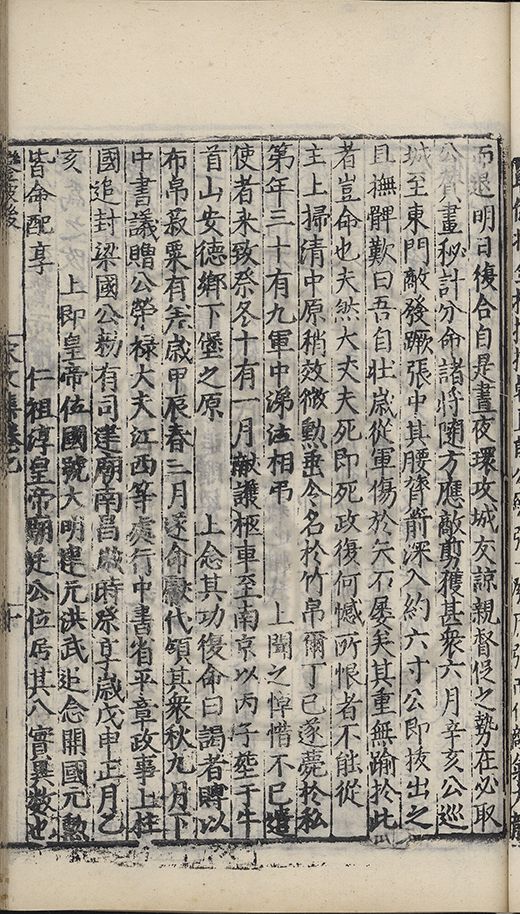 而退明日復合自是晝夜環攻城友諒親督促之勢在必取
公賛畫秘計分命諸將隨方應敵剪獲甚衆六月辛亥公巡
城至東門敵發蹶張中其腰膂箭深入約六寸公即拔出之
且撫髀歎曰吾自壯歲從軍傷於矢石屡矣其重無踰於此
者豈命也夫然大丈夫死即死政復何憾所恨者不能從
主上掃清中原稍效微勲垂令名於竹帛爾丁巳遂薨於私
第年三十有九軍中涕泣相弔 上聞之悼惜不已遣
使者来致祭冬十有一月獻護柩車至南京以丙子塟于牛
首山安德鄉下堡之原 上念其功復命曰謁者賻以
布帛菽粟有差歲甲辰春三月遂命獻代領其衆秋九月下
中書議贈公榮禄大夫江西等處行中書省平章政事上柱
國追封梁國公勑有司建廟南昌歲時祭享歲戊申正月乙
亥 上即皇帝位國號大明建元洪武追念開國元勲
皆命配享 仁祖淳皇帝廟廷公位居其八實異数也
宋文集卷九 十